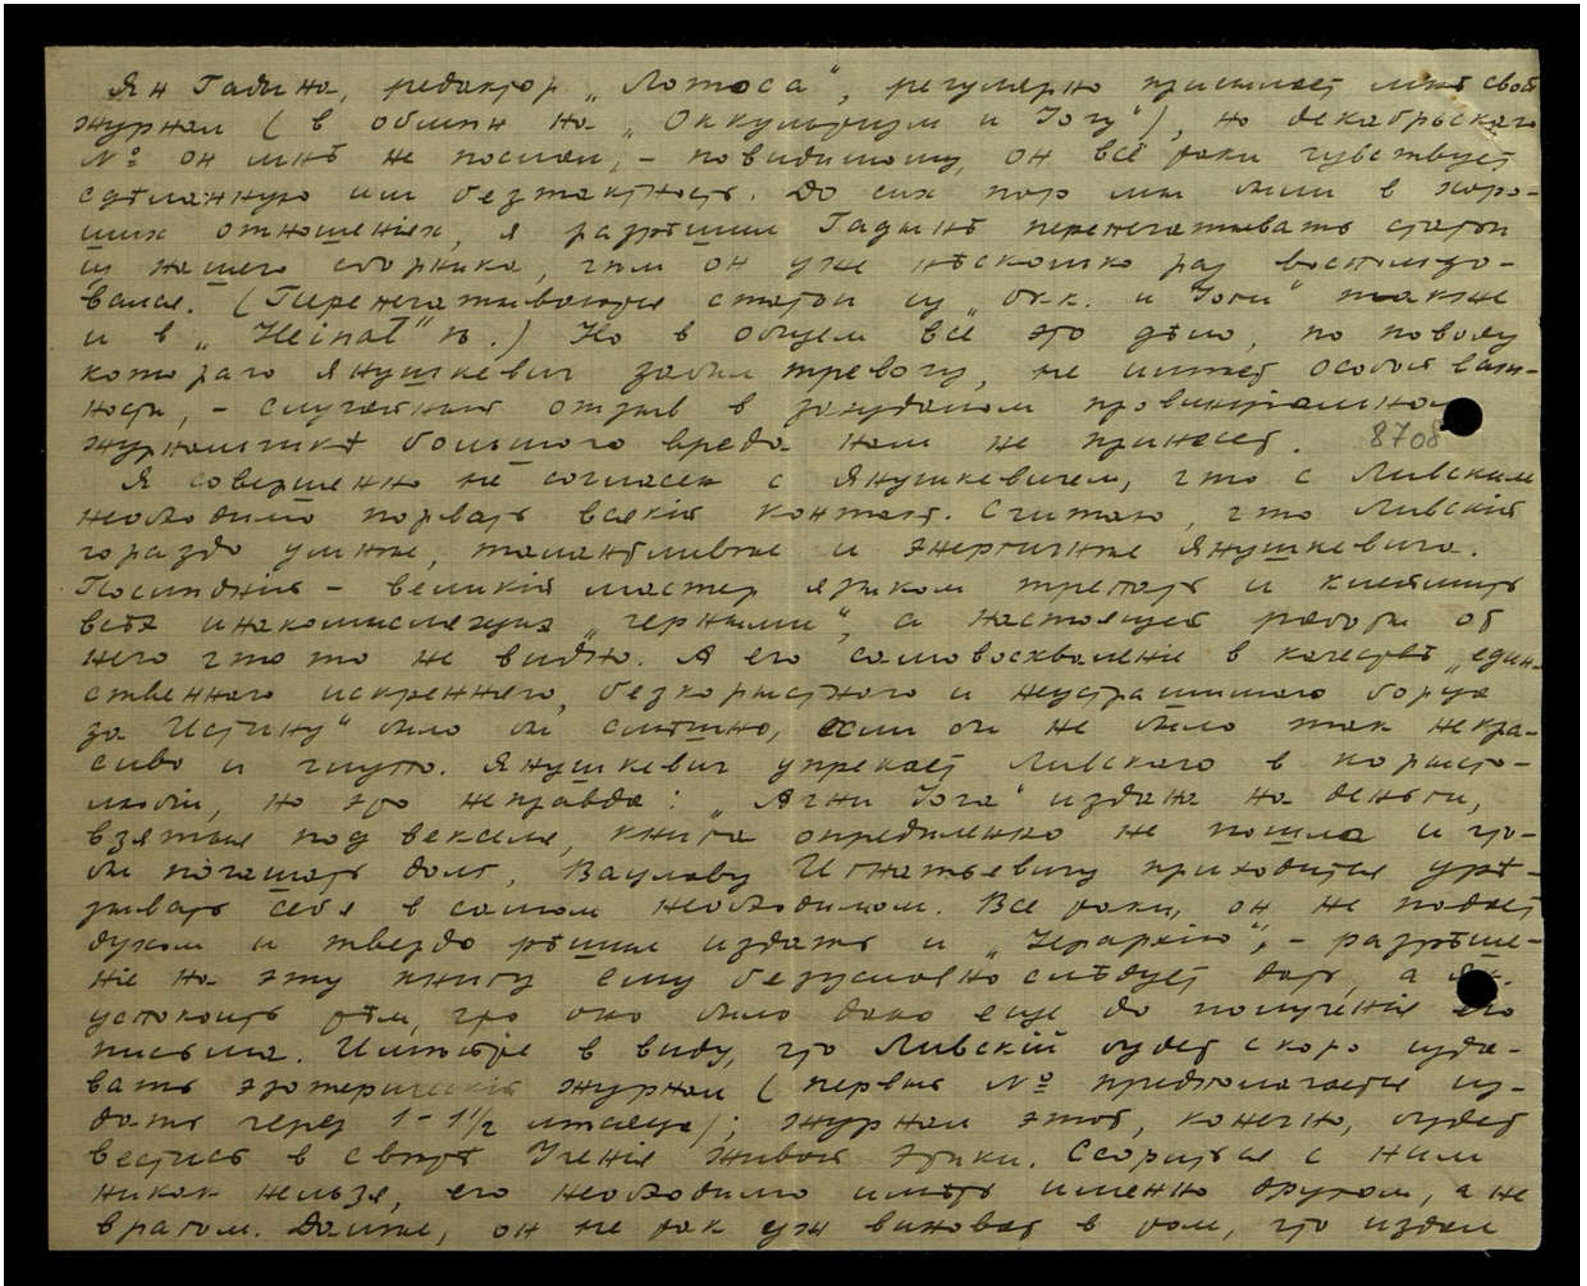 Ян Гадина, редактор „Лотоса“, регулярно присылает мнѣ свой
журнал (в обмѣн на „Оккультизм и Іогу“), но декабрьскаго
№ он мнѣ не послал, – повидимому, он всё таки чувствует
сдѣланную им безтактность. До сих пор мы были в хоро-
ших отношеніях, я разрѣшил Гадинѣ перепечатывать статьи
из нашего сборника, чѣм он уже нѣсколько раз воспользо-
вался. (Перепечатываются статьи из „Окк. и Іоги“ также
и в „Heinal“ѣ.) Но в общем всё это дѣло, по поводу
котораго Янушкевич забил тревогу, не имѣет особой важ-
ности, – случайный отзыв в захудалом провинціальном
журнальчикѣ большого вреда нам не принесет. 8708
Я совершенно не согласен с Янушкевичем, что с Ливским
необходимо порвать всякій контакт. Считаю, что Ливскій
гораздо умнѣе, талантливѣе и энергичнѣе Янушкевича.
Послѣдній – великій мастер языком трепать и клеймить
всѣх инакомыслящих „черными“, а настоящей работы от
него что то не видно. А его самовосхваленіе в качествѣ „един-
ственнаго искренняго, безкорыстного и неустрашимаго борца
за Истину“ было бы смѣшно, если бы не было так некра-
сиво и глупо. Янушкевич упрекает Ливскаго в корысто-
любіи, но это неправда: „Агни Іога“ издана на деньги,
взятые под векселя, книга опредѣленно не пошла и что-
бы погашать долг, Вацлаву Игнатьевичу приходится урѣ-
зывать себя в самом необходимом. Все таки, он не падает
духом и твердо рѣшил издать и „Іерархію“, – разрѣше-
ніе на эту книгу ему безусловно слѣдует дать, а
успокоить тѣм, что оно было дано еще до полученія его
письма. Имѣйте в виду, что Ливскій будет скоро изда-
вать эзотерическій журнал (первый № предполагается из-
дать через 1 – 1½ мѣсяца); журнал этот, конечно, будет
вестись в свѣтѣ Ученія Живой Этики. Ссориться с ним
никак нельзя, его необходимо имѣть именно другом, а не
врагом. Далѣе, он не так уж виноват в том, что издал